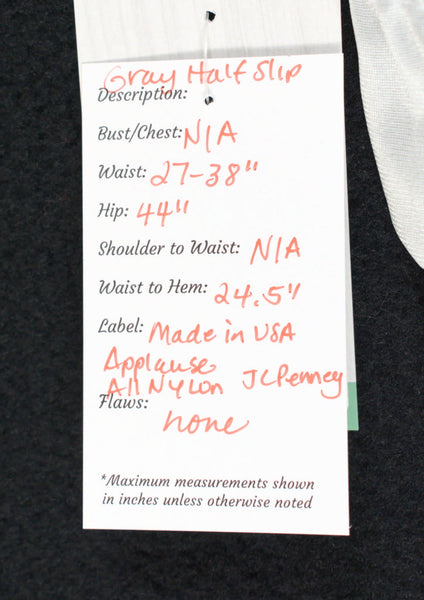 Gray Half Slip
Description:
Bust/Chest: N/A
Waist: 27-38"
Hip: 44"
Shoulder to Waist: N/A
Waist to Hem: 24.5"
Label: Made in USA
Applause
All Nylon JCPenney
Flaws:
none
*Maximum measurements shown
in inches unless otherwise noted